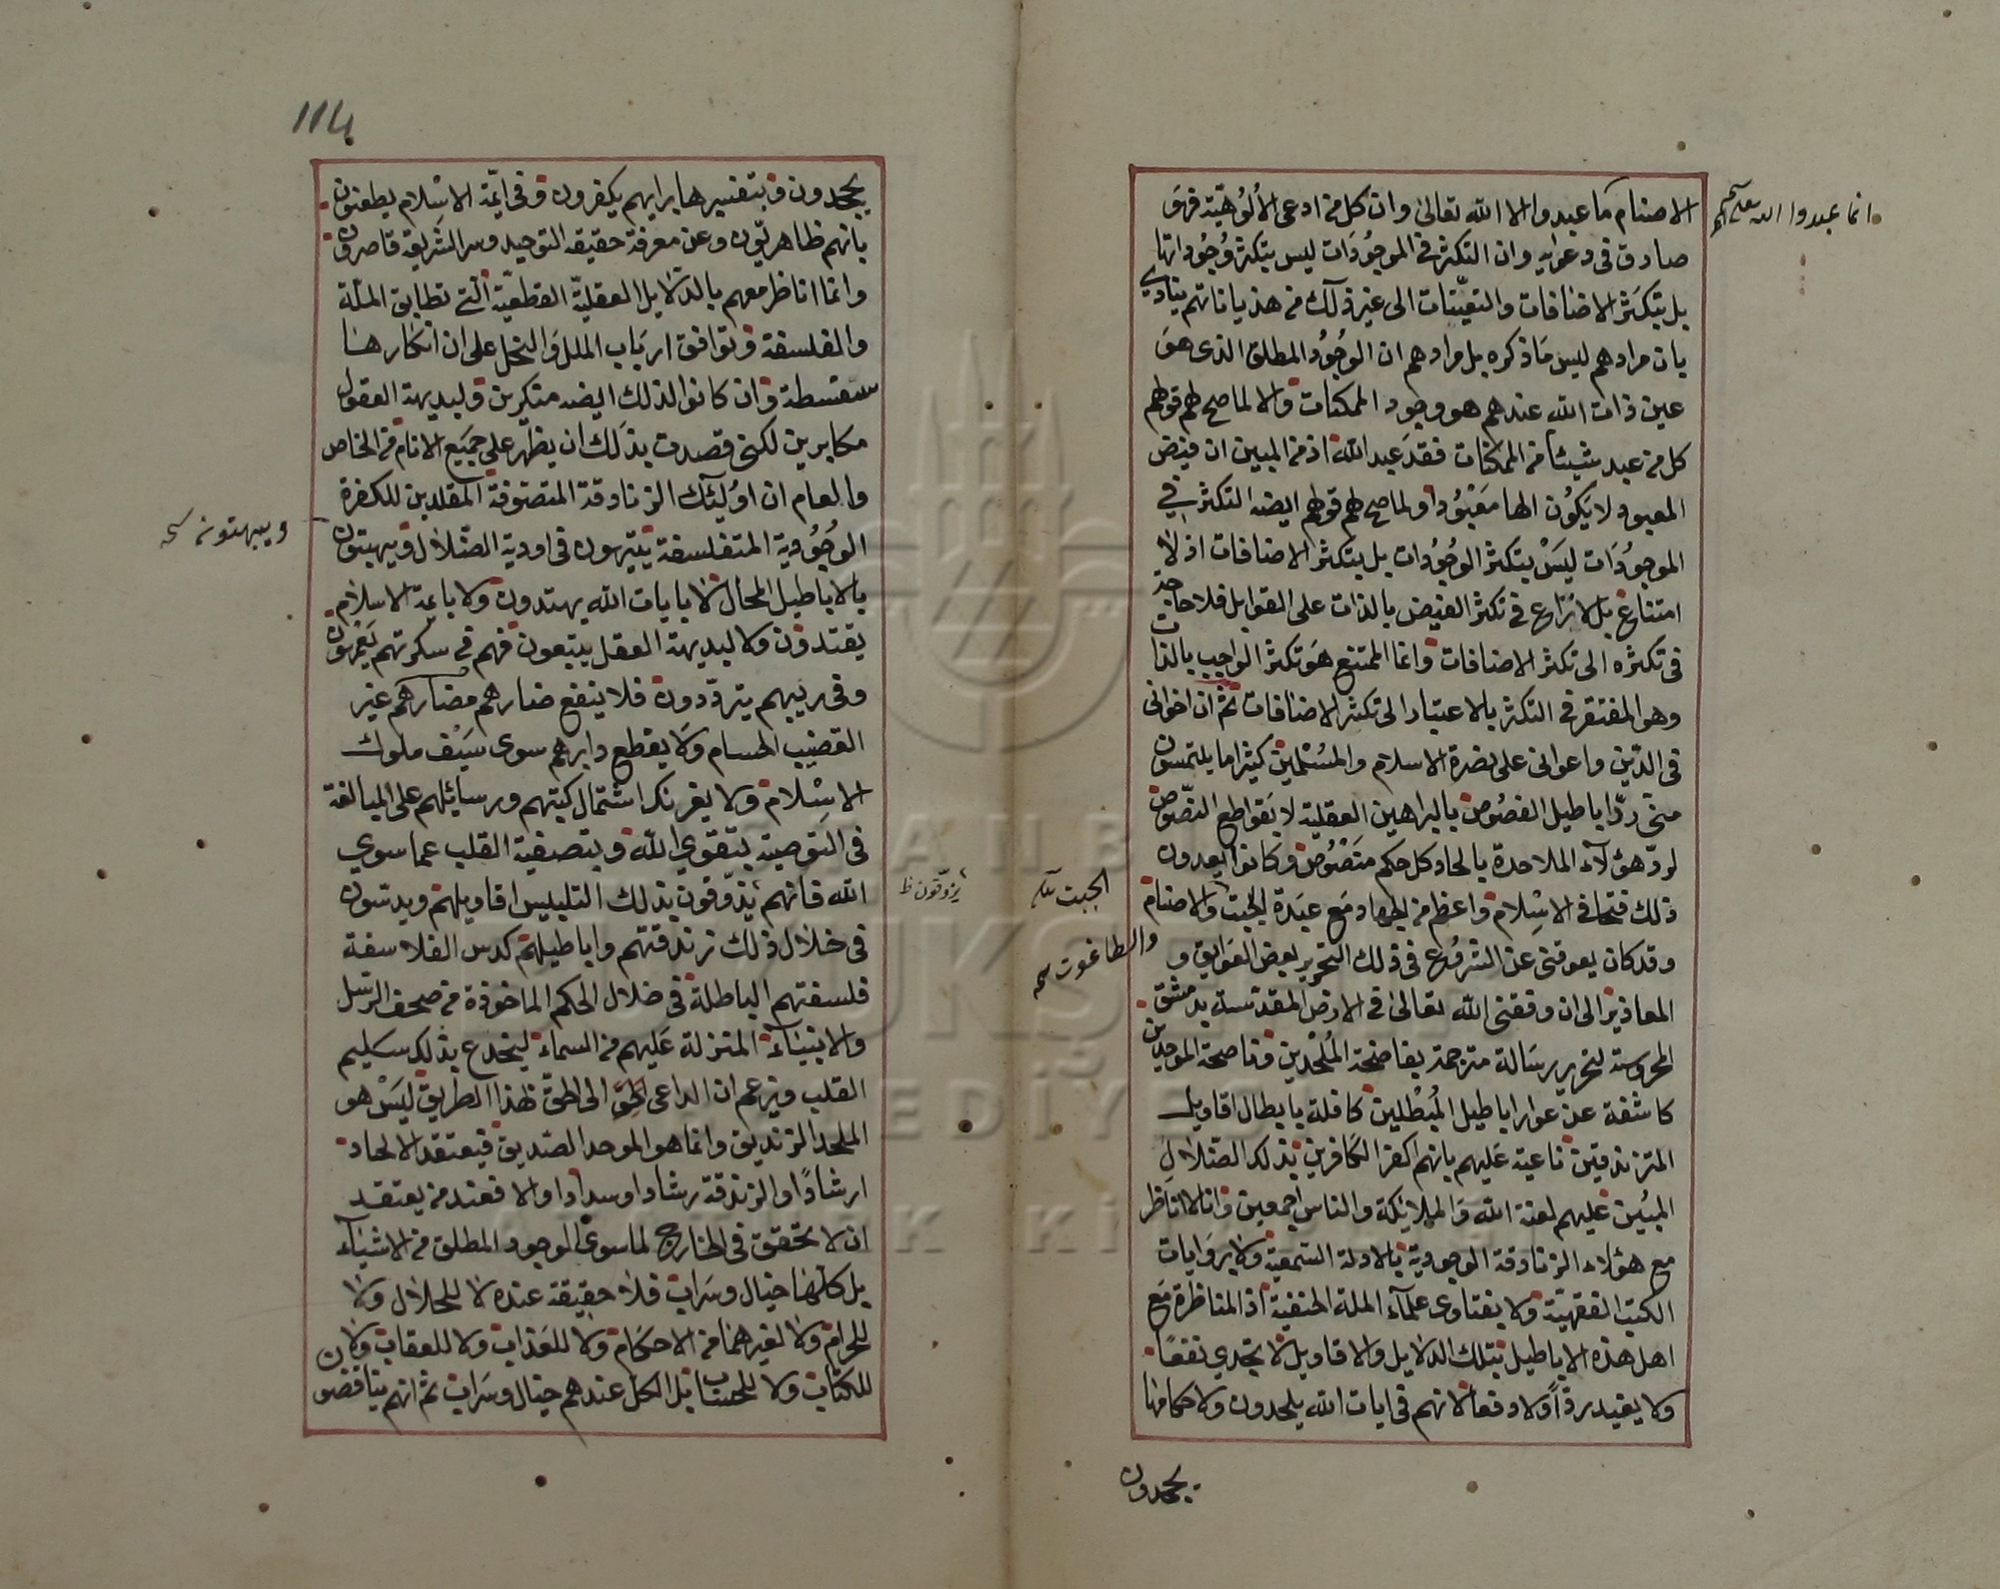 الاصنام ما عبدوا الا الله تعالى وان كل من ادعى الالوهية فهو
انما عبدوا الله
صادق فى دعواه وان التكثر فى الموجودات ليس بتكثر وجوداتها
بل بتكثر الاضافات والتعينات الى غير ذلك من هذياناتهم ينادى
بان مرادهم ليس ما ذكره بل مرادهم ان الوجود المطلق الذى هو
عين ذات الله عندهم هو وجود الممكنات والا لما صح لهم قولهم
كل من عبد شيئا من الممكنات فقد عبد الله اذ من المبين ان فيض
المعبود لا يكون الها معبودا ولما صح لهم قولهم ايضا التكثر فى
الموجودات ليس بتكثر الوجودات بل بتكثر الاضافات اذ لا
امتناع بل لا نزاع فى تكثر الفيض بالذات على القوابل فلا حاجة
فى تكثره الى تكثر الاضافات وانما الممتنع هو تكثر الواجب بالذات
وهو المفتقر فى التكثر بالاعتبار الى تكثر الاضافات ثم ان اخوانى
فى الدين واعوانى على نصرة الاسلام والمسلمين كثيرا ما يلتمسون
منى رد اباطيل الفصوص بالبراهين العقلية لا بقواطع النصوص
لرد هؤلاء الملاحدة بالحاد كل حكم منصوص وكانوا يعدون
ذلك فتحا فى الاسلام واعظم من الجهاد مع عبدة الجبت والاصنام
الجبت
والطاغوت صح
وقد كان يعوقنى عن الشروع فى ذلك التحرير بعض العوايق و
المعاذير الى ان وفقنى الله تعالى فى الارض المقدسة بدمشق
المحروسة لتحرير رسالة مترجمة بفاضحة الملحدين وناصحة الموحدين
كاشفة عن عوار اباطيل المبطلين كافلة بابطال اقاويل
المتزندقين ناعية عليهم بانهم اكفر الكافرين بذلك الضلال
المبين عليهم لعنة الله والملائكة والناس اجمعين وانا لا اناظر
مع هؤلاء الزنادقة الوجودية بالادلة السمعية ولا بروايات
الكتب الفقهية ولا بفتاوى علماء الملة الحنفية اذ المناظرة مع
اهل هذه الاباطيل بتلك الدلايل والاقاويل لا تجدى نفعا
ولا يفيد ردا ولا دفعا لانهم فى ايات الله يلحدون ولاحكامها
يجحدون
114
يجحدون وبتفسيرها برايهم يكفرون وفى ائمة الاسلام يطعنون
بانهم ظاهريون وعن معرفة حقيقة التوحيد وسر الشريعة قاصرون
وانما اناظر معهم بالدلايل العقلية القطعية التى تطابق الملة
والفلسفة وتوافق ارباب الملل والنحل على ان انكارها
سفسطة وان كانوا لذلك ايضا منكرين ولبديهة العقول
مكابرين لكنى قصدت بذلك ان يظهر على جميع الانام من الخاص
والعام ان اولئك الزنادقة المتصوفة المقلدين للكفرة
الوجودية المتفلسفة يتيهون فى اودية الضلال ويبهتون
ويبهتون صح
بالاباطيل المحال لا بايات الله يهتدون ولا بائمة الاسلام
يقتدون ولا لبديهة العقل يتبعون فهم فى سكرتهم يعمهون
وفى ريبهم يترددون فلا ينفع ضارهم مضارهم غير
القضيب الحسام ولا يقطع دابرهم سوى سيف ملوك
الاسلام ولا يغرنك اشتمال كتبهم ورسائلهم على المبالغة
فى التوصية بتقوى الله وبتصفية القلب عما سوى
الله فانهم يذوقون بذلك التلبيس اقاويلهم ويدسون
يزوقون ظ
فى خلال ذلك زندقتهم واباطيلهم كدس الفلاسفة
فلسفتهم الباطلة فى خلال الحكم الماخوذة من صحف الرسل
والانبياء المنزلة عليهم من السماء لينخدع بذلك سليم
القلب ويزعم ان الداعى للحق الى الحق بهذا الطريق ليس هو
الملحد الزنديق وانما هو الموحد الصديق فيعتقد الالحاد
ارشادا والزندقة رشادا وسدادا والا فعند من يعتقد
ان لا تحقق فى الخارج لما سوى الوجود المطلق من الاشياء
بل كلها خيال وسراب فلا حقيقة عنده لا للحلال ولا
للحرام ولا لغيرهما من الاحكام ولا للعذاب ولا للعقاب ولا
للكتاب ولا للحساب بل الكل عندهم خيال وسراب ثم انهم يناقضون